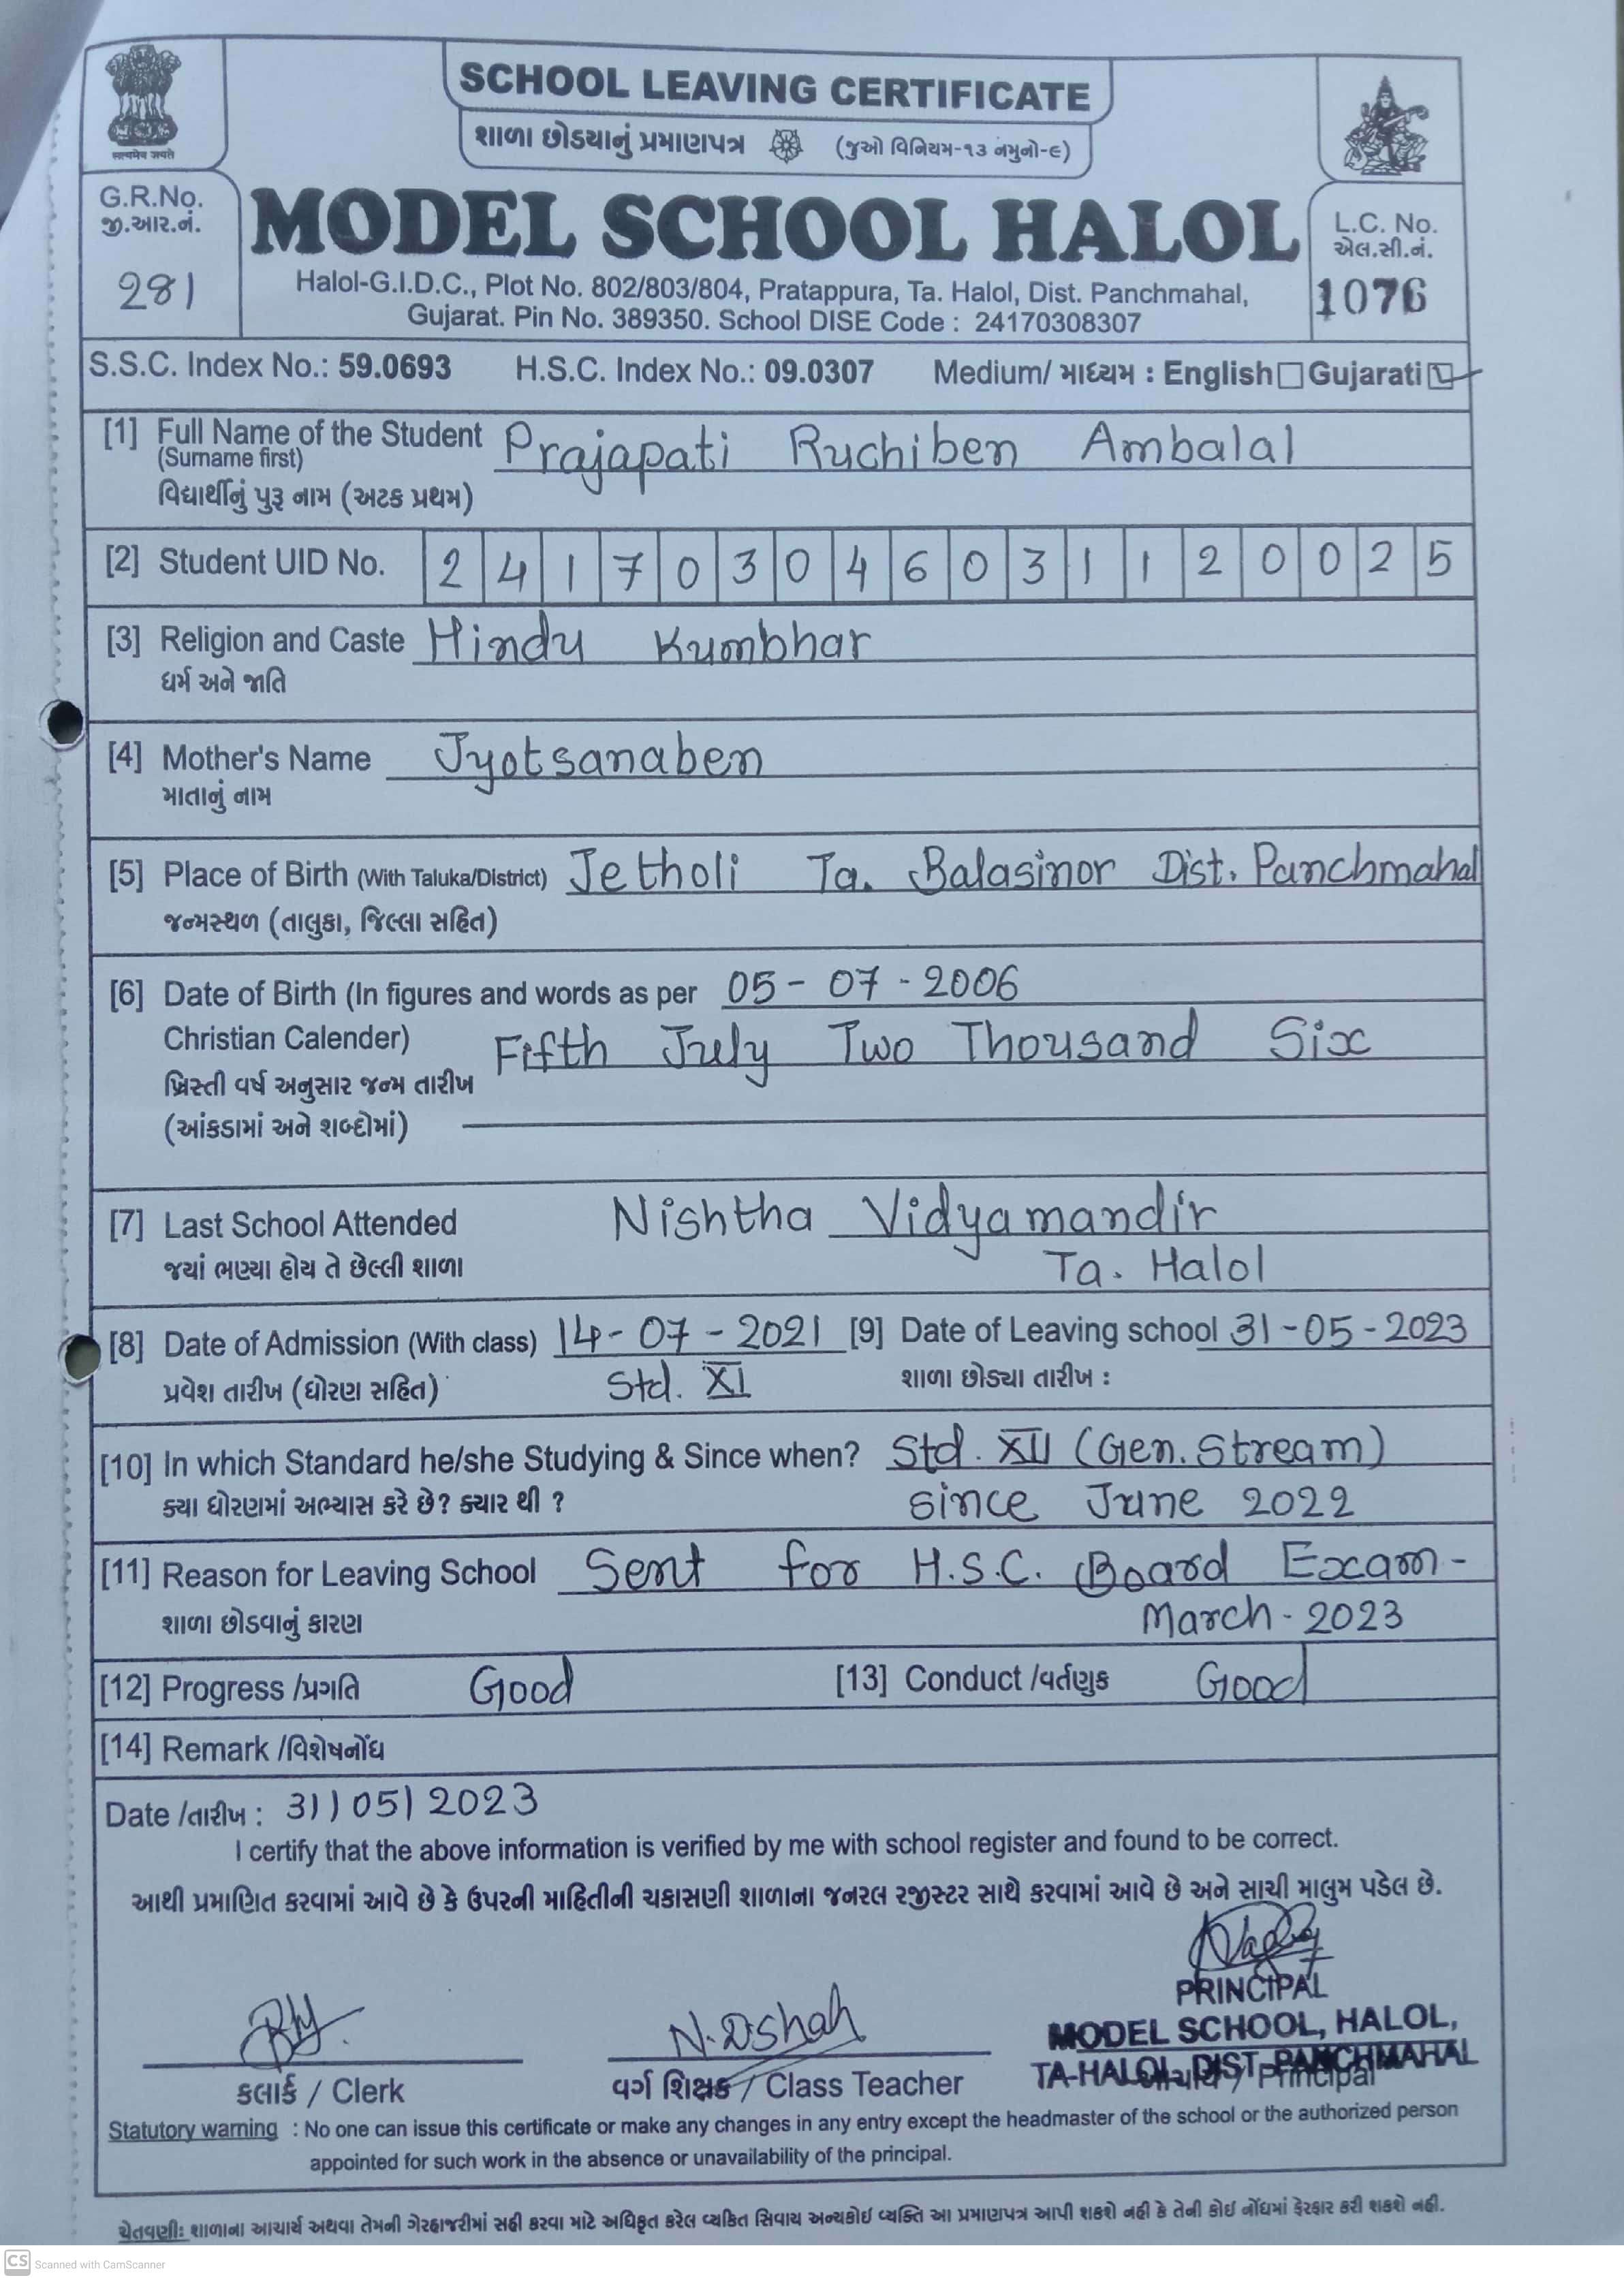 सत्यमेव जयते
SCHOOL LEAVING CERTIFICATE
શાળા છોડયાનું પ્રમાણપત્ર (જુઓ વિનિયમ-૧૩ નમુનો-૯)
G.R.No.
જી.આર.નં.
281
MODEL SCHOOL HALOL
Halol-G.I.D.C., Plot No. 802/803/804, Pratappura, Ta. Halol, Dist. Panchmahal,
Gujarat. Pin No. 389350. School DISE Code : 24170308307
L.C. No.
એલ.સી.નં.
1076
S.S.C. Index No.: 59.0693 H.S.C. Index No.: 09.0307 Medium/ માધ્યમ : English Gujarati
[1] Full Name of the Student Prajapati Ruchiben Ambalal
(Surname first)
વિદ્યાર્થીનું પુરૂ નામ (અટક પ્રથમ)
[2] Student UID No. 2 4 1 7 0 3 0 4 6 0 3 1 1 2 0 0 2 5
[3] Religion and Caste Hindu Kumbhar
ધર્મ અને જાતિ
[4] Mother's Name Jyotsanaben
માતાનું નામ
[5] Place of Birth (With Taluka/District) Jetholi Ta. Balasinor Dist. Panchmahal
જન્મસ્થળ (તાલુકા, જિલ્લા સહિત)
[6] Date of Birth (In figures and words as per 05 - 07 - 2006
Christian Calender) Fifth July Two Thousand Six
ખ્રિસ્તી વર્ષ અનુસાર જન્મ તારીખ
(આંકડામાં અને શબ્દોમાં)
[7] Last School Attended Nishtha Vidyamandir
જયાં ભણ્યા હોય તે છેલ્લી શાળા Ta. Halol
[8] Date of Admission (With class) 14 - 07 - 2021 [9] Date of Leaving school 31 - 05 - 2023
પ્રવેશ તારીખ (ધોરણ સહિત) Std. XI શાળા છોડ્યા તારીખ :
[10] In which Standard he/she Studying & Since when? Std. XII (Gen. Stream)
ક્યા ધોરણમાં અભ્યાસ કરે છે? ક્યાર થી ? since June 2022
[11] Reason for Leaving School Sent for H.S.C. Board Exam -
શાળા છોડવાનું કારણ March - 2023
[12] Progress /પ્રગતિ Good [13] Conduct /વર્તણુક Good
[14] Remark /વિશેષનોંધ
Date /તારીખ : 31/05/2023
I certify that the above information is verified by me with school register and found to be correct.
આથી પ્રમાણિત કરવામાં આવે છે કે ઉપરની માહિતીની ચકાસણી શાળાના જનરલ રજીસ્ટર સાથે કરવામાં આવે છે અને સાચી માલુમ પડેલ છે.
N.D shah
PRINCIPAL
MODEL SCHOOL, HALOL,
TA-HALOL, DIST. PANCHMAHAL
કલાર્ક / Clerk વર્ગ શિક્ષક / Class Teacher / Principal
Statutory warning : No one can issue this certificate or make any changes in any entry except the headmaster of the school or the authorized person
appointed for such work in the absence or unavailability of the principal.
ચેતવણી: શાળાના આચાર્ય અથવા તેમની ગેરહાજરીમાં સહી કરવા માટે અધિકૃત કરેલ વ્યકિત સિવાય અન્યકોઈ વ્યક્તિ આ પ્રમાણપત્ર આપી શકશે નહી કે તેની કોઈ નોંધમાં ફેરફાર કરી શકશે નહી.
CS Scanned with CamScanner